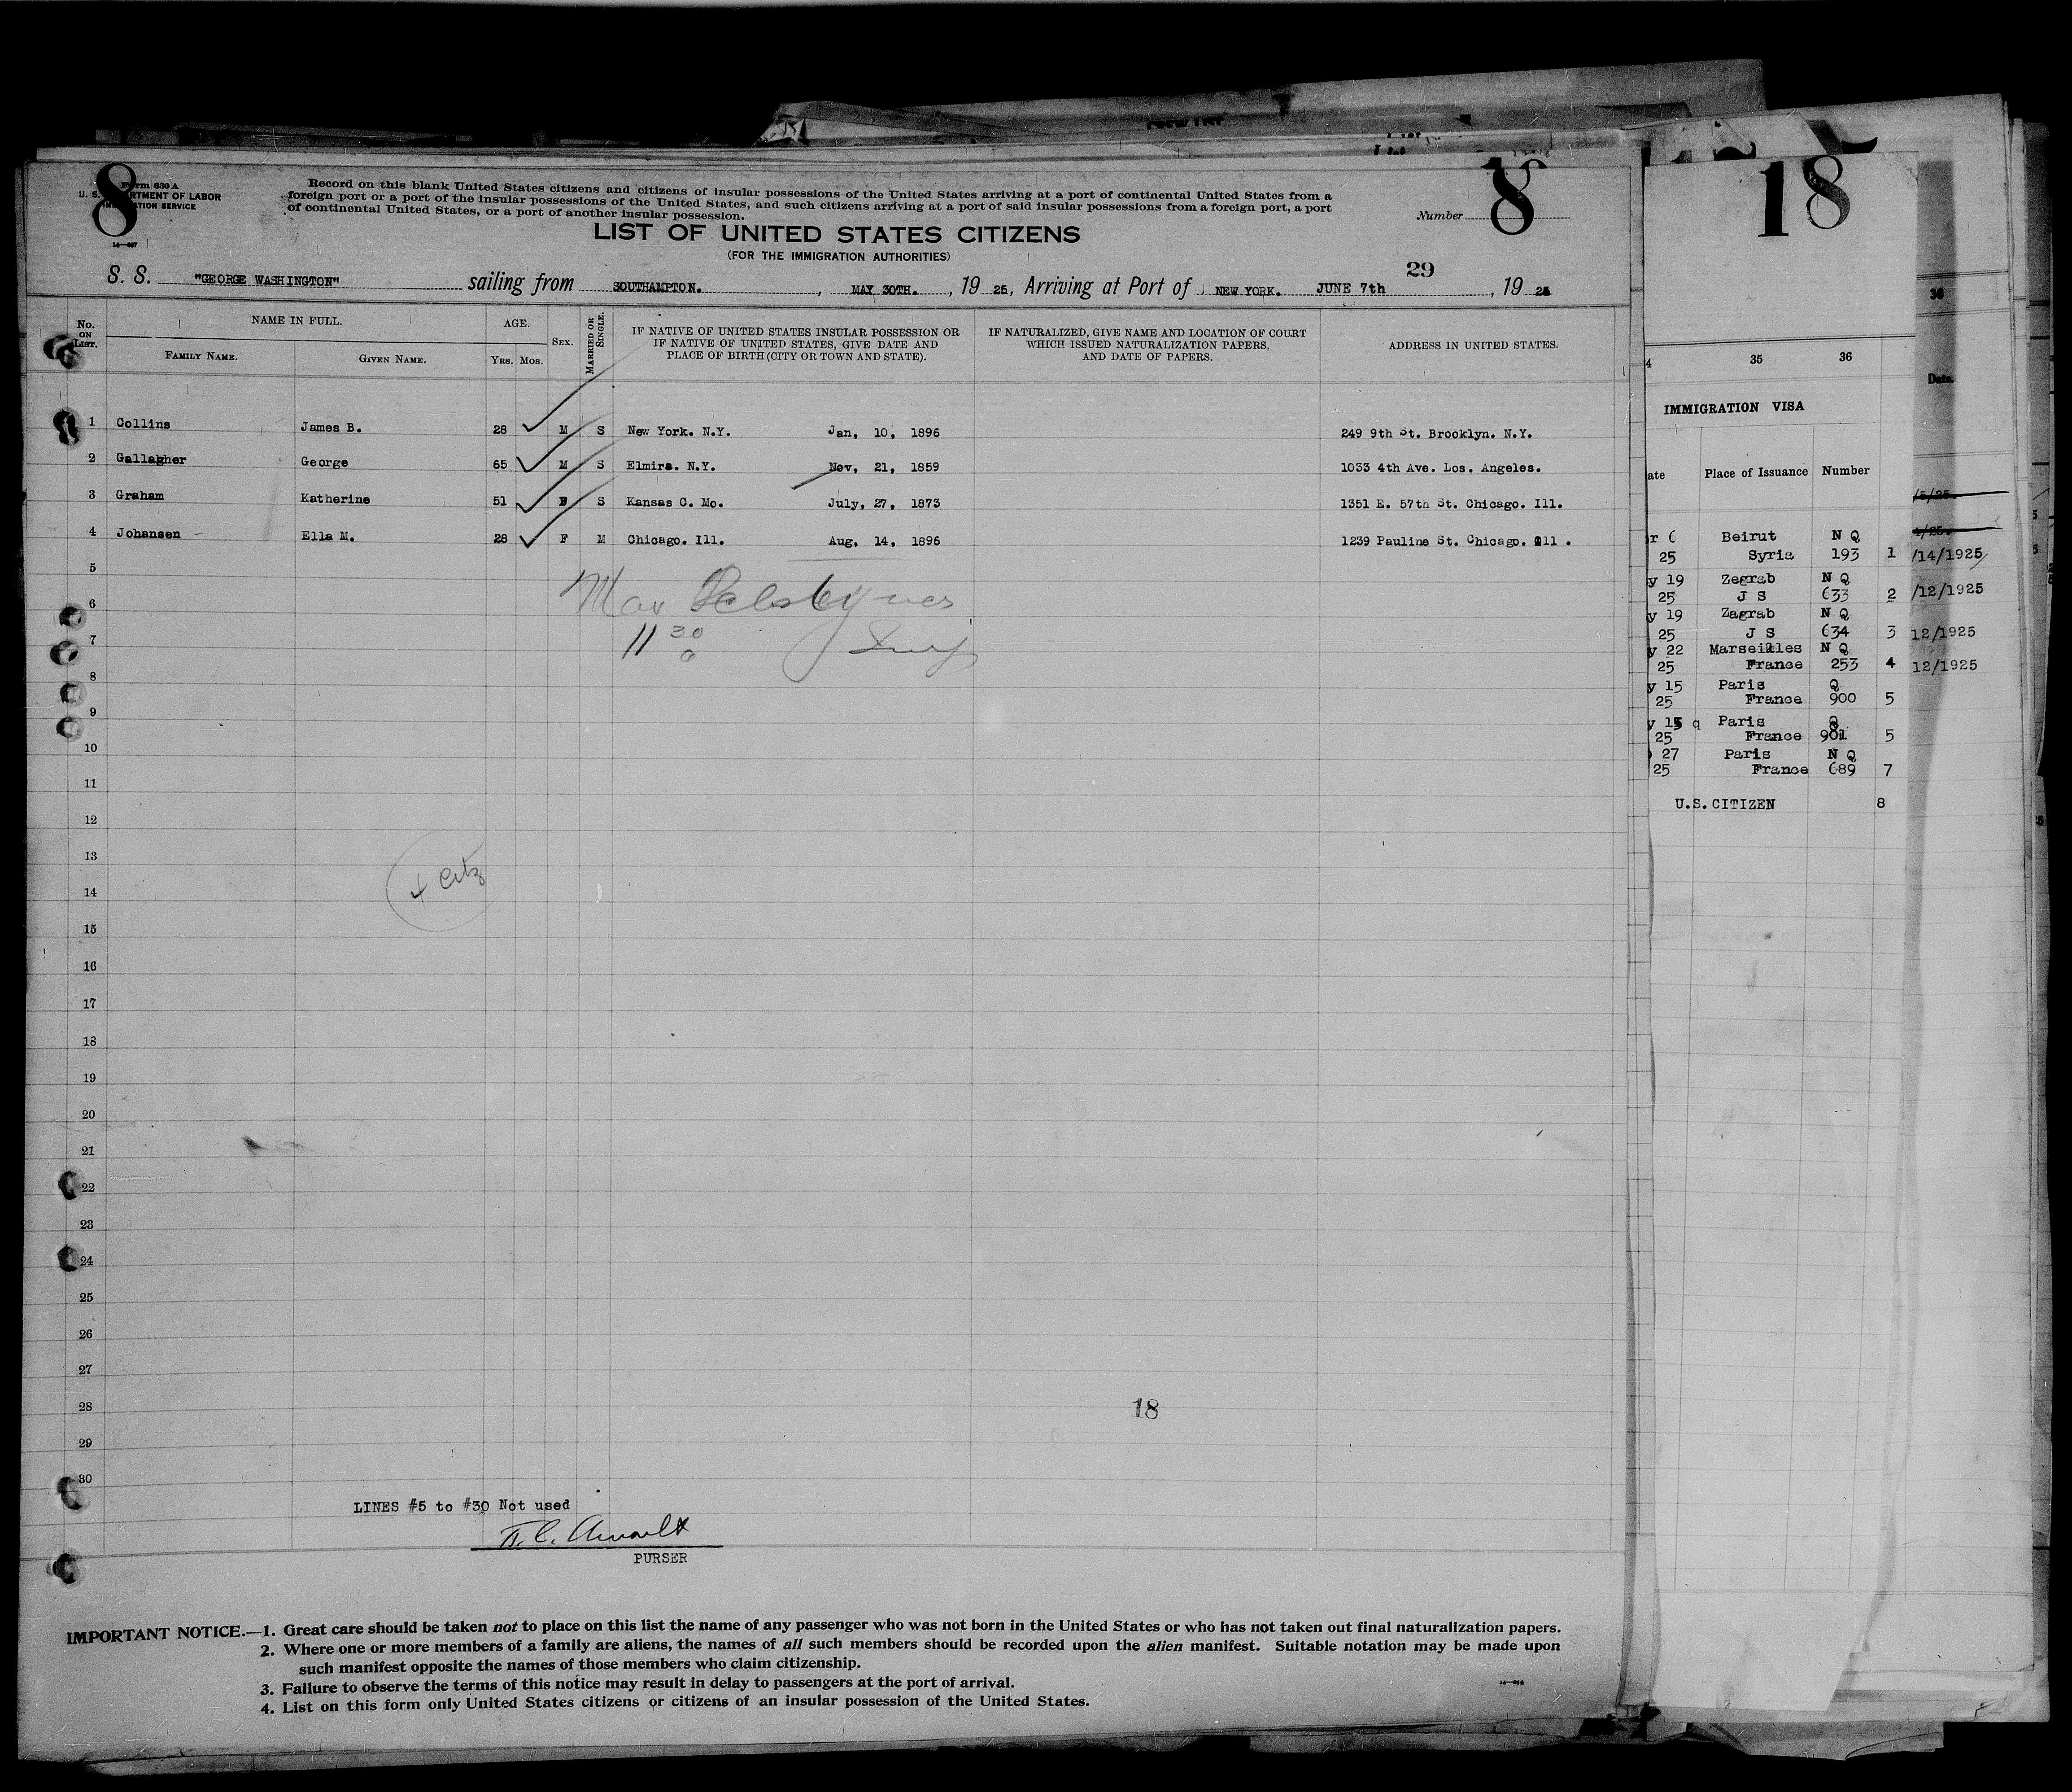 8
Form 630 A
U. S. DEPARTMENT OF LABOR
IMMIGRATION SERVICE
14—607
Record on this blank United States citizens and citizens of insular possessions of the United States arriving at a port of continental United States from a
foreign port or a port of the insular possessions of the United States, and such citizens arriving at a port of said insular possessions from a foreign port, a port
of continental United States, or a port of another insular possession.
Number 8
LIST OF UNITED STATES CITIZENS
(FOR THE IMMIGRATION AUTHORITIES)
29
S. S. "GEORGE WASHINGTON" sailing from SOUTHAMPTON. , MAY 30TH. , 19 25, Arriving at Port of NEW YORK. JUNE 7th , 19 25
No. ON LIST. NAME IN FULL. AGE. SEX. MARRIED OR SINGLE. IF NATIVE OF UNITED STATES INSULAR POSSESSION OR IF NATIVE OF UNITED STATES, GIVE DATE AND PLACE OF BIRTH (CITY OR TOWN AND STATE). IF NATURALIZED, GIVE NAME AND LOCATION OF COURT WHICH ISSUED NATURALIZATION PAPERS, AND DATE OF PAPERS. ADDRESS IN UNITED STATES.
FAMILY NAME. GIVEN NAME. YRS. MOS.
1 Collins James B. 28 M S New York. N.Y. Jan, 10, 1896 249 9th St. Brooklyn. N.Y.
2 Gallagher George 65 M S Elmira. N.Y. Nov, 21, 1859 1033 4th Ave. Los. Angeles.
3 Graham Katherine 51 F S Kansas C. Mo. July, 27, 1873 1351 E. 57th St. Chicago. Ill.
4 Johansen Ella M. 28 F M Chicago. Ill. Aug, 14, 1896 1239 Pauline St. Chicago. Ill .
5
6 Max
7 11 30
8
9
10
11
12
13
14 4 Citz
15
16
17
18
19
20
21
22
23
24
25
26
27
28 18
29
30
LINES #5 to #30 Not used
PURSER
IMPORTANT NOTICE.—1. Great care should be taken not to place on this list the name of any passenger who was not born in the United States or who has not taken out final naturalization papers.
2. Where one or more members of a family are aliens, the names of all such members should be recorded upon the alien manifest. Suitable notation may be made upon
such manifest opposite the names of those members who claim citizenship.
3. Failure to observe the terms of this notice may result in delay to passengers at the port of arrival.
4. List on this form only United States citizens or citizens of an insular possession of the United States.
18
35 36
IMMIGRATION VISA
Place of Issuance Number
Beirut N Q
25 Syria 193 1
y 19 Zegrab N Q
25 J S 633 2
y 19 Zagrab N Q
25 J S 634 3
y 22 Marseilles N Q
25 France 253 4
y 15 Paris Q
25 France 900 5
y 15 q Paris Q
25 France 901 5
27 Paris N Q
25 France 689 7
U.S.CITIZEN 8
36
Date.
/5/25.
4/25.
/14/1925
/12/1925
12/1925
12/1925